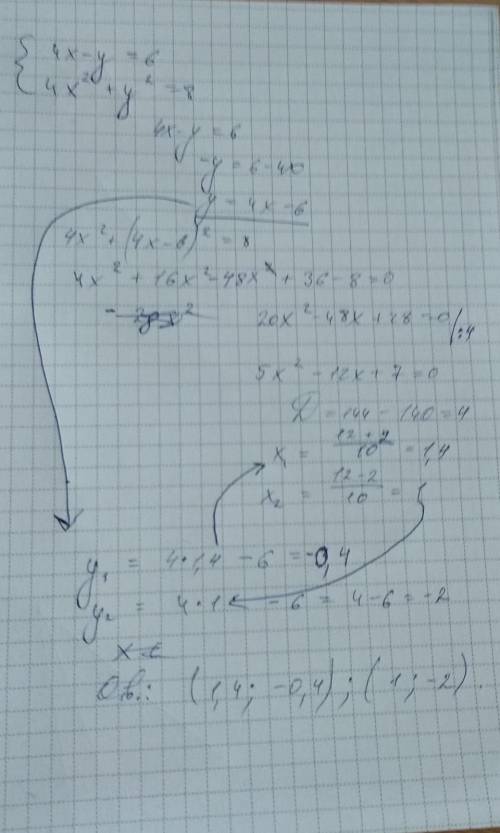 4x-y=6
4x²+y²=8
4x-y=6
-y=6-4x
y=4x-6
4x²+(4x-6)²=8
4x²+16x²-48x+36-8=0
20x²-48x+28=0/:4
5x²-12x+7=0
D=144-140=4
x₁=(12+2)/10=1,4
x₂=(12-2)/10=1
y₁=4·1,4-6=-0,4
y₂=4·1-6=4-6=-2
Отв.: (1,4; -0,4); (1; -2).